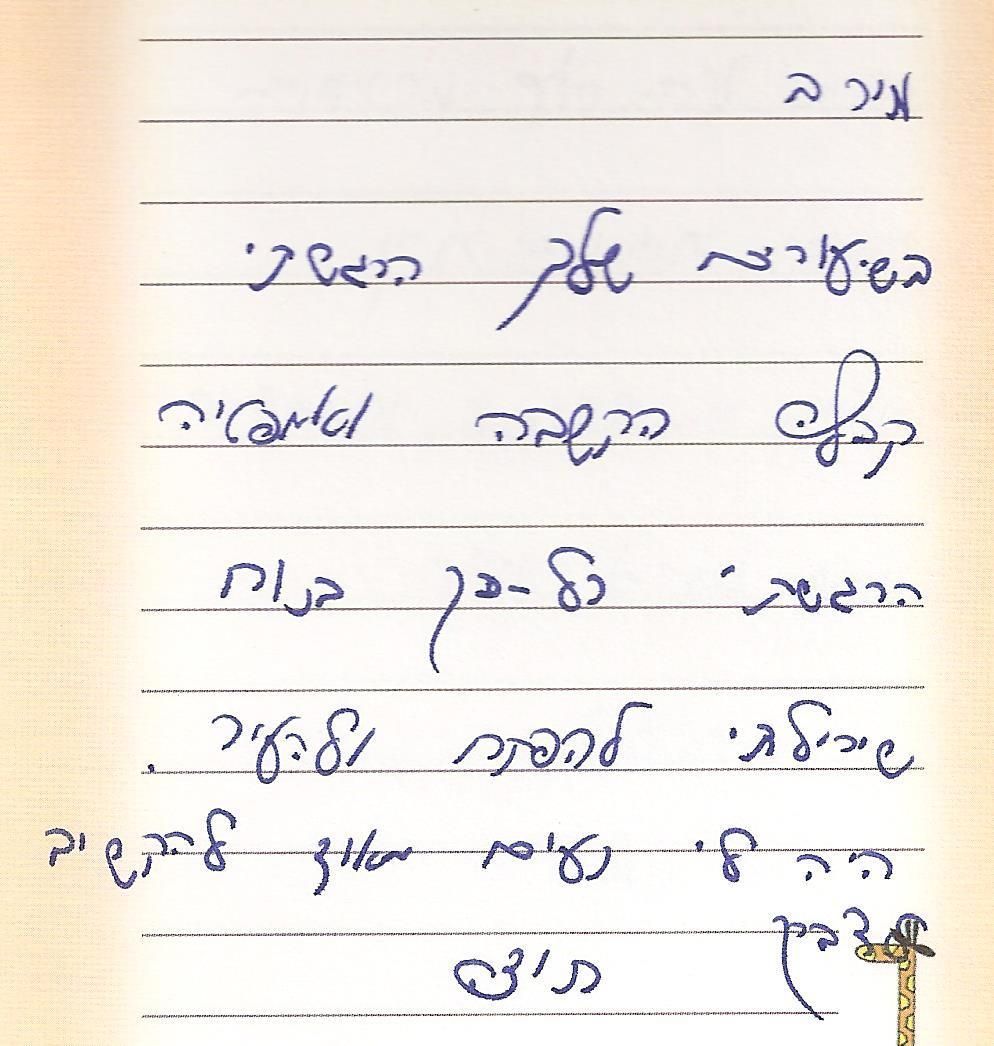 מירב
בשיעורים שלך הרגשתי
קבלה הקשבה ואמפטיה
הרגשתי כל-כך בנוח
שיכולתי להפתח ולהעיר.
היה לי נעים מאוד להקשיב
לדברך
תודה